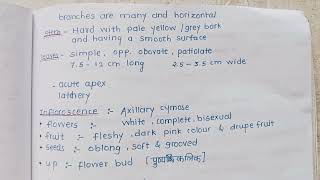 branches are many and horizontal
stem - Hard with pale yellow / grey bark
and having a smooth surface
leaves - simple, opp. obovate, patiolate
7.5 - 12 cm long 2.5 - 3.5 cm wide
- acute apex
lathery
Infloroscence :- Axillary cymose
• flowers :- white, complete, bisexual
• fruit :- fleshy, dark pink colour & drupe fruit
• seeds :- oblong, soft & grooved
• up :- flower bud [